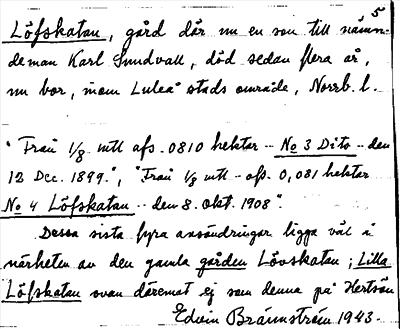 5
Löfskatan, gård där nu en son till nämn-
deman Karl Sundvall, död sedan flera år,
nu bor, inom Luleå stads område, Norrb. l.
"Från 1/8 mtl afs. 0810 hektar -- No 3 Dito -- den
12 Dec. 1899.", "Från 1/8 mtl - afs. 0,081 hektar
No 4 Löfskatan -- den 8. okt. 1908".
Dessa sista fyra användringar ligga väl i
närheten av den gamla gården Lövskatan; Lilla
Löfskatan ovan däremot ej som denna på Hertsön
Edvin Brännström 1943.